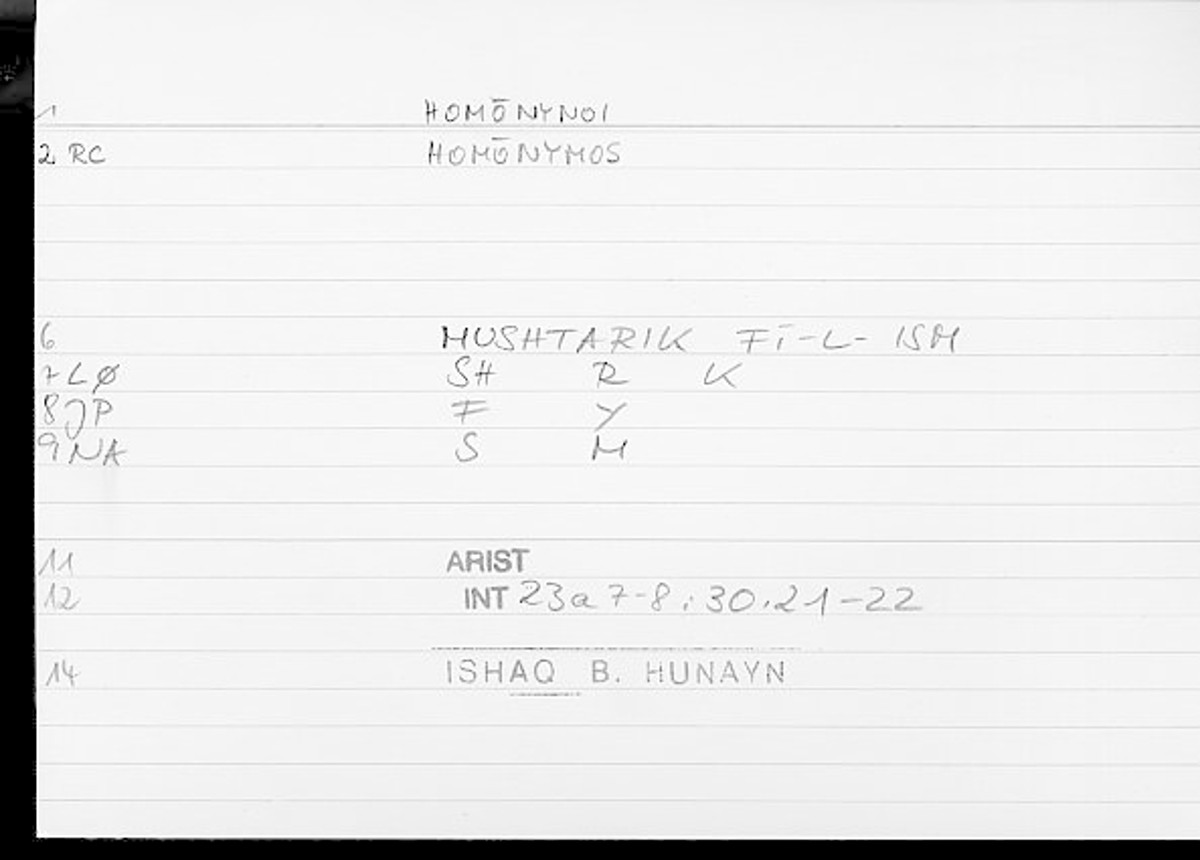 1 HOMŌNYNOI
2 RC HOMŌNYMOS
6 MUSHTARIK FĪ-L-ISM
7 LØ SH R K
8 JP F Y
9 NA S M
11 ARIST
12 INT 23a 7-8 ; 30.21-22
14 ISHAQ B. HUNAYN